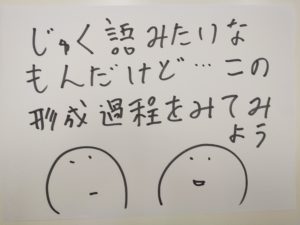 じゅく語みたいな
もんだけど…この
形成過程をみてみ
よう